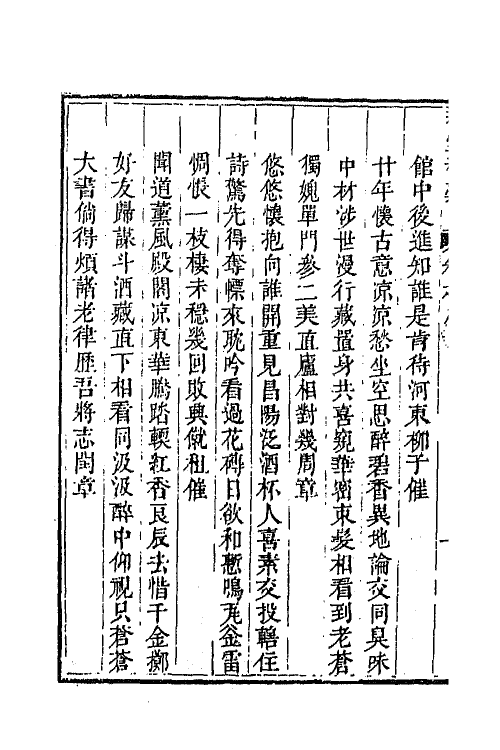 館中後進知誰是肯待河東柳子催
廿年懷古意凉凉愁坐空思醉碧香異地論交同臭味
中材涉世漫行藏置身共喜窺華密束髮相看到老蒼
獨媿單門參二美直廬相對幾周章
悠悠懷抱向誰開重見昌陽泛酒杯人喜素交投轄住
詩驚先得奪慓來耽吟看過花磚日欲和慙鳴瓦釜雷
惆悵一枝棲未穩幾回敗興僦租催
聞道薰風殿閣涼東華騰踏輭紅香良辰去惜千金擲
好友歸謀斗酒藏直下相看同汲汲醉中仰視只蒼蒼
大書倘得煩諸老律歷吾將志閏章